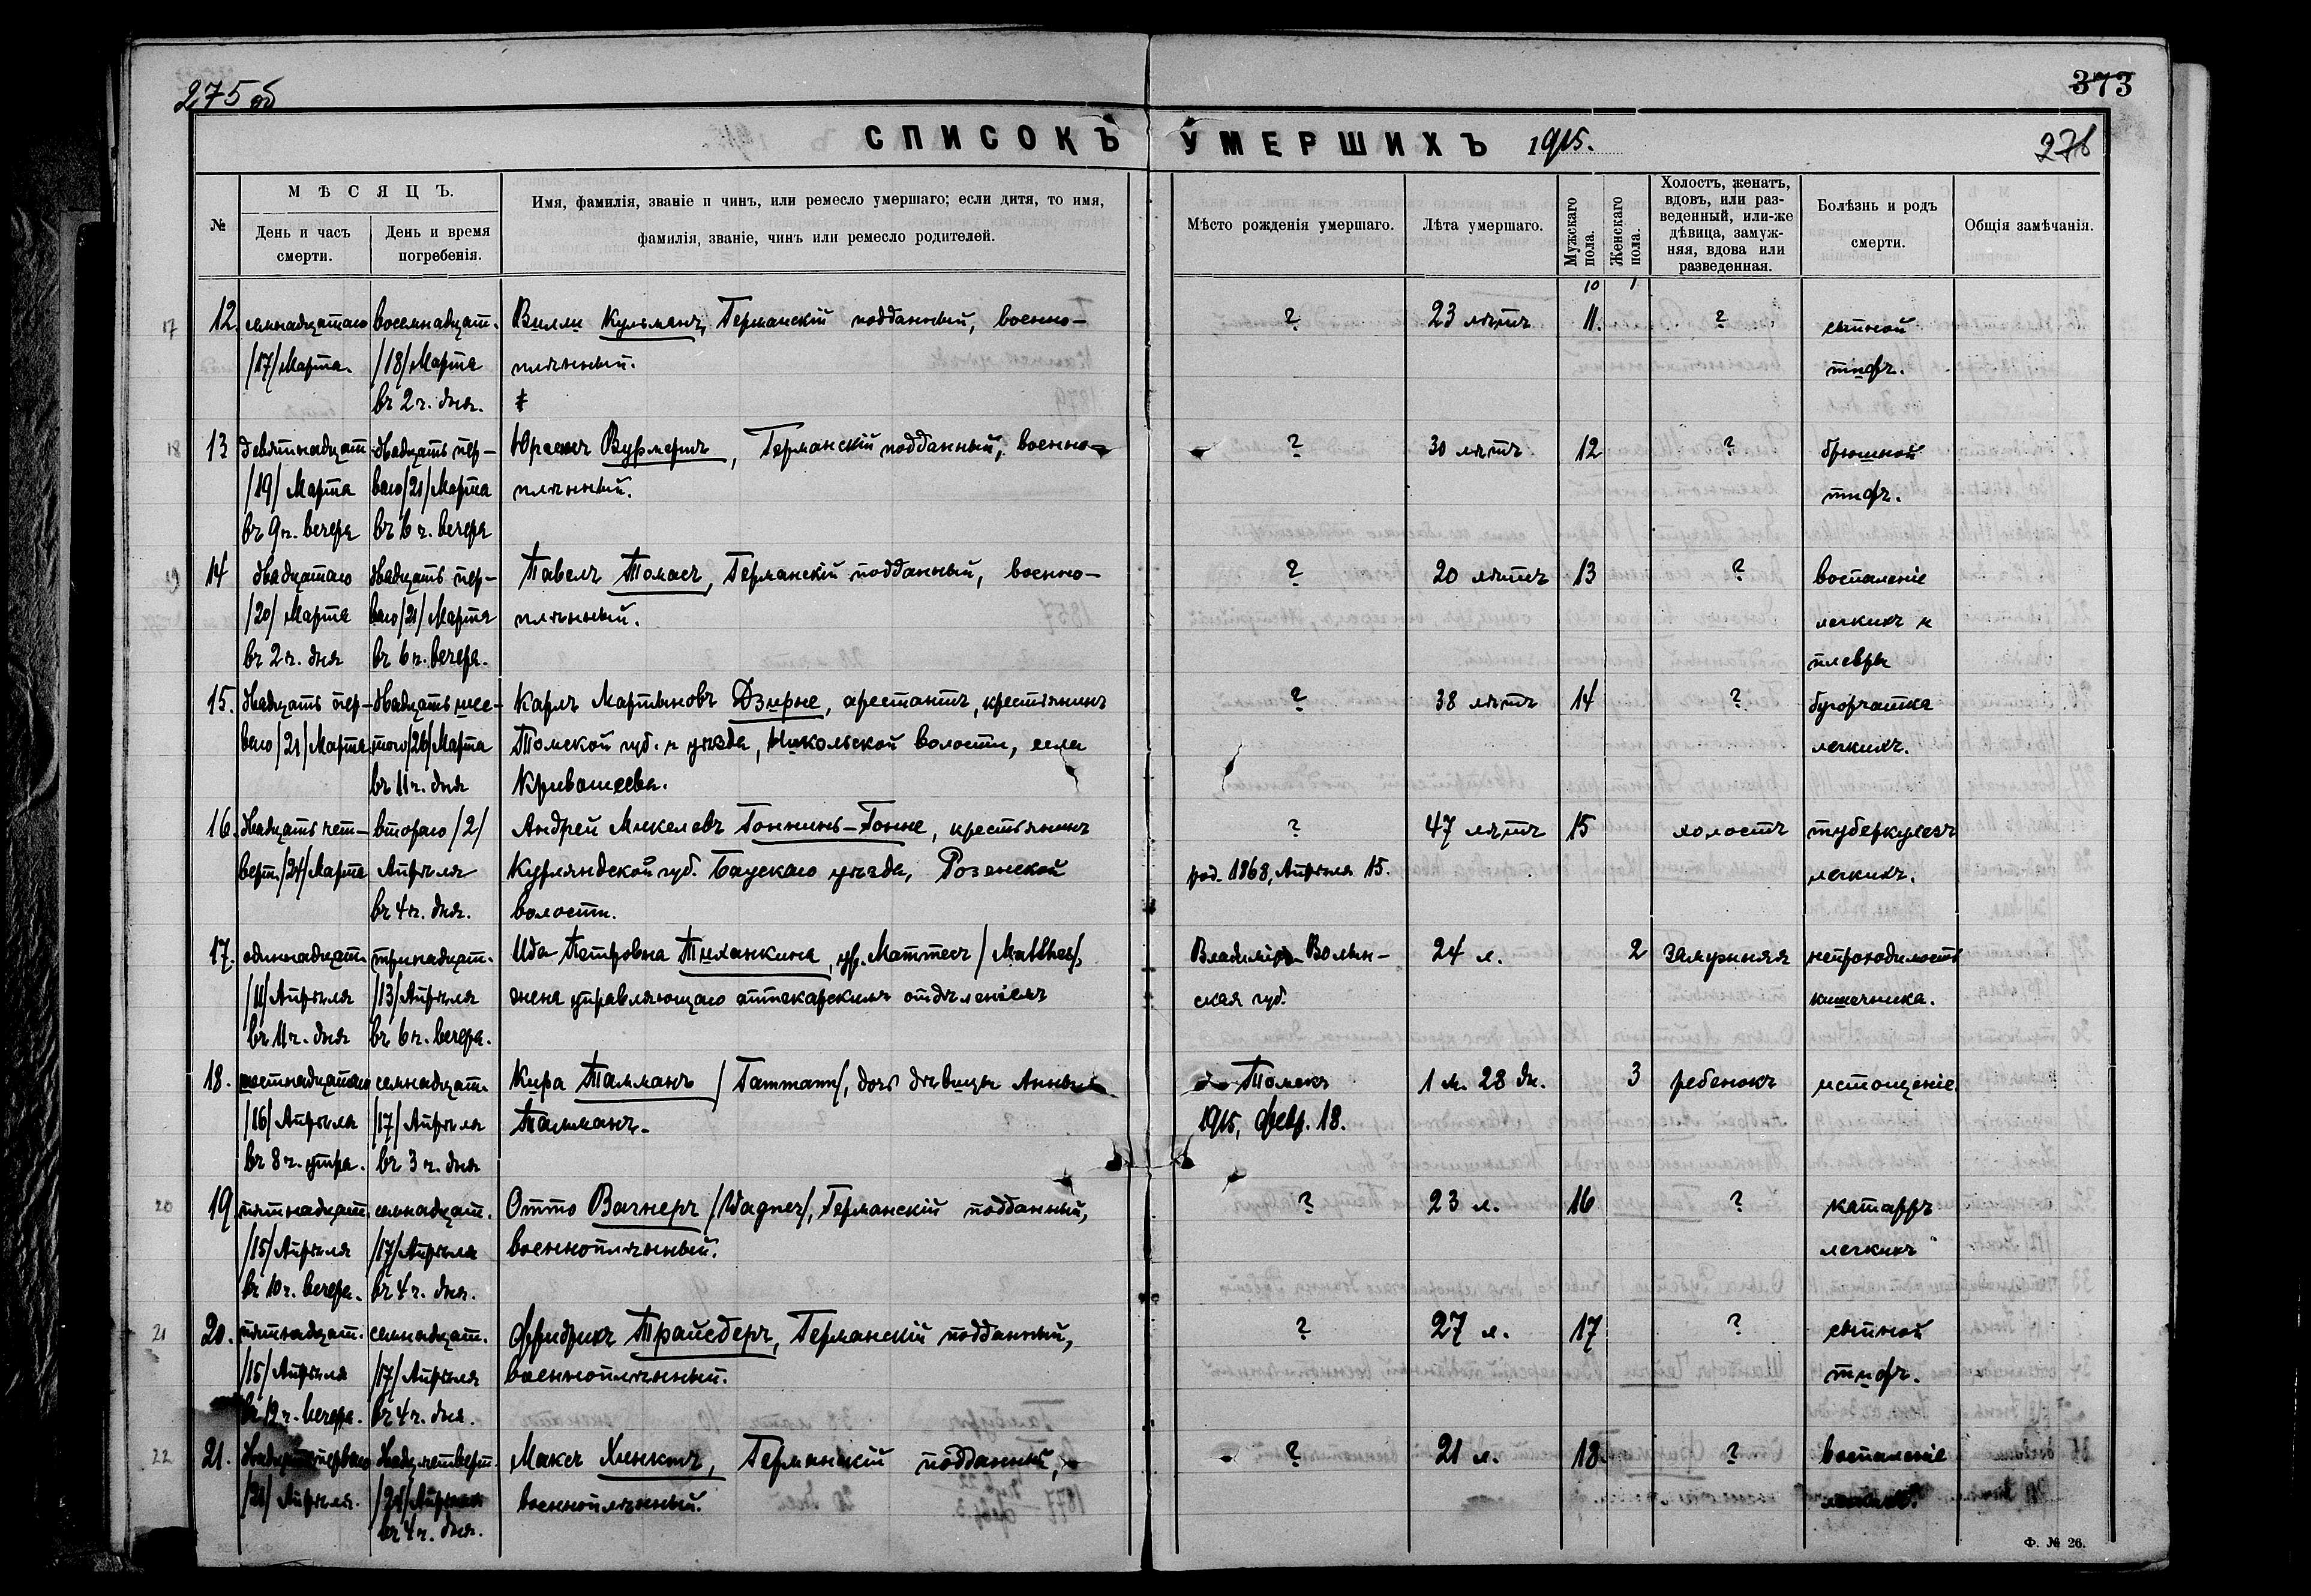 275 об
373
СПИСОКЪ УМЕРШИХЪ 1915.
276
№
МѢСЯЦЪ.
День и часъ смерти.
День и время погребенія.
Имя, фамилія, званіе и чинъ, или ремесло умершаго; если дитя, то имя,
фамилія, званіе, чинъ или ремесло родителей.
Мѣсто рожденія умершаго.
Лѣта умершаго.
Мужскаго пола.
Женскаго пола.
Холостъ, женатъ,
вдовъ, или раз-
веденный, или-же
дѣвица, замуж-
няя, вдова или
разведенная.
Болѣзнь и родъ
смерти.
Общія замѣчанія.
10 1
17 12 семнадцатаго восемнадцат. Вилли Кульманъ, Германскій подданный, военно- ? 23 лѣтъ 11. ? сыпной
/17/ Марта. /18/ Марта плѣнный. тифъ.
въ 2 ч. дня.
18 13 девятнадцат двадцать пер- Вурмеръ, Германскій подданный, военно- ? 30 лѣтъ 12 ? брюшной
/19/ Марта ваго /21/ Марта плѣнный. тифъ.
въ 9 ч. вечера въ 6 ч. вечера
19 14 двадцатаго двадцать пер- Павелъ Томасъ, Германскій подданный, военно- ? 20 лѣтъ 13 ? воспаленіе
/20/ Марта ваго /21/ Марта плѣнный. легкихъ и
въ 2 ч. дня въ 6 ч. вечера. плевры
15. двадцать пер- двадцать шес- Карлъ Мартыновъ Дзирне, арестантъ, крестьянинъ ? 38 лѣтъ 14 ? бугорчатка
ваго /21/ Марта таго /26/ Марта Томской губ. и уѣзда, Никольской волости, села легкихъ.
въ 11 ч. дня Кривошеева.
16. двадцать чет- второго /2/ Андрей Микелевъ Гоннинь-Гонне, крестьянинъ ? 47 лѣтъ 15 холостъ туберкулезъ
верт. /24/ Марта Апрѣля Курляндской губ. Баускаго уѣзда, Розенской род. 1868, Апрѣля 15. легкихъ.
въ 4 ч. дня. волости.
17. одиннадцат. тринадцат. Ида Петровна Тиханкина, ур. Маттесъ /Matthes/, Владимір. Волын- 24 л. 2 замужняя непроходимость
/11/ Апрѣля /13/ Апрѣля жена управляющаго аптекарскимъ отдѣленіемъ ская губ. кишечника.
въ 11 ч. дня въ 6 ч. вечера.
18. шестнадцатаго семнадцат. Кира Тамманъ /Tammann/, дочь дѣвицы Анны Томскъ 1 м. 28 дн. 3 ребенокъ истощеніе
/16/ Апрѣля /17/ Апрѣля Тамманъ. 1915, февр. 18.
въ 8 ч. утра. въ 3 ч. дня
20 19. пятнадцат. семнадцат. Отто Вагнеръ /Wagner/, Германскій подданный, ? 23 л. 16 ? катарръ
/15/ Апрѣля /17/ Апрѣля военноплѣнный. легкихъ
въ 10 ч. вечера. въ 4 ч. дня.
21 20. пятнадцат. семнадцат. Фридрихъ Трайсберъ, Германскій подданный, ? 27 л. 17 ? сыпной
/15/ Апрѣля /17/ Апрѣля военноплѣнный. тифъ.
въ 12 ч. вечера. въ 4 ч. дня.
22 21. двадцать перваго двадц. четверт. Максъ Хленкъ, Германскій подданный, ? 21 л. 18. ? воспаленіе
/21/ Апрѣля. /24/ Апрѣля военноплѣнный. легкихъ.
въ 4 ч. дня.
Ф. № 26.